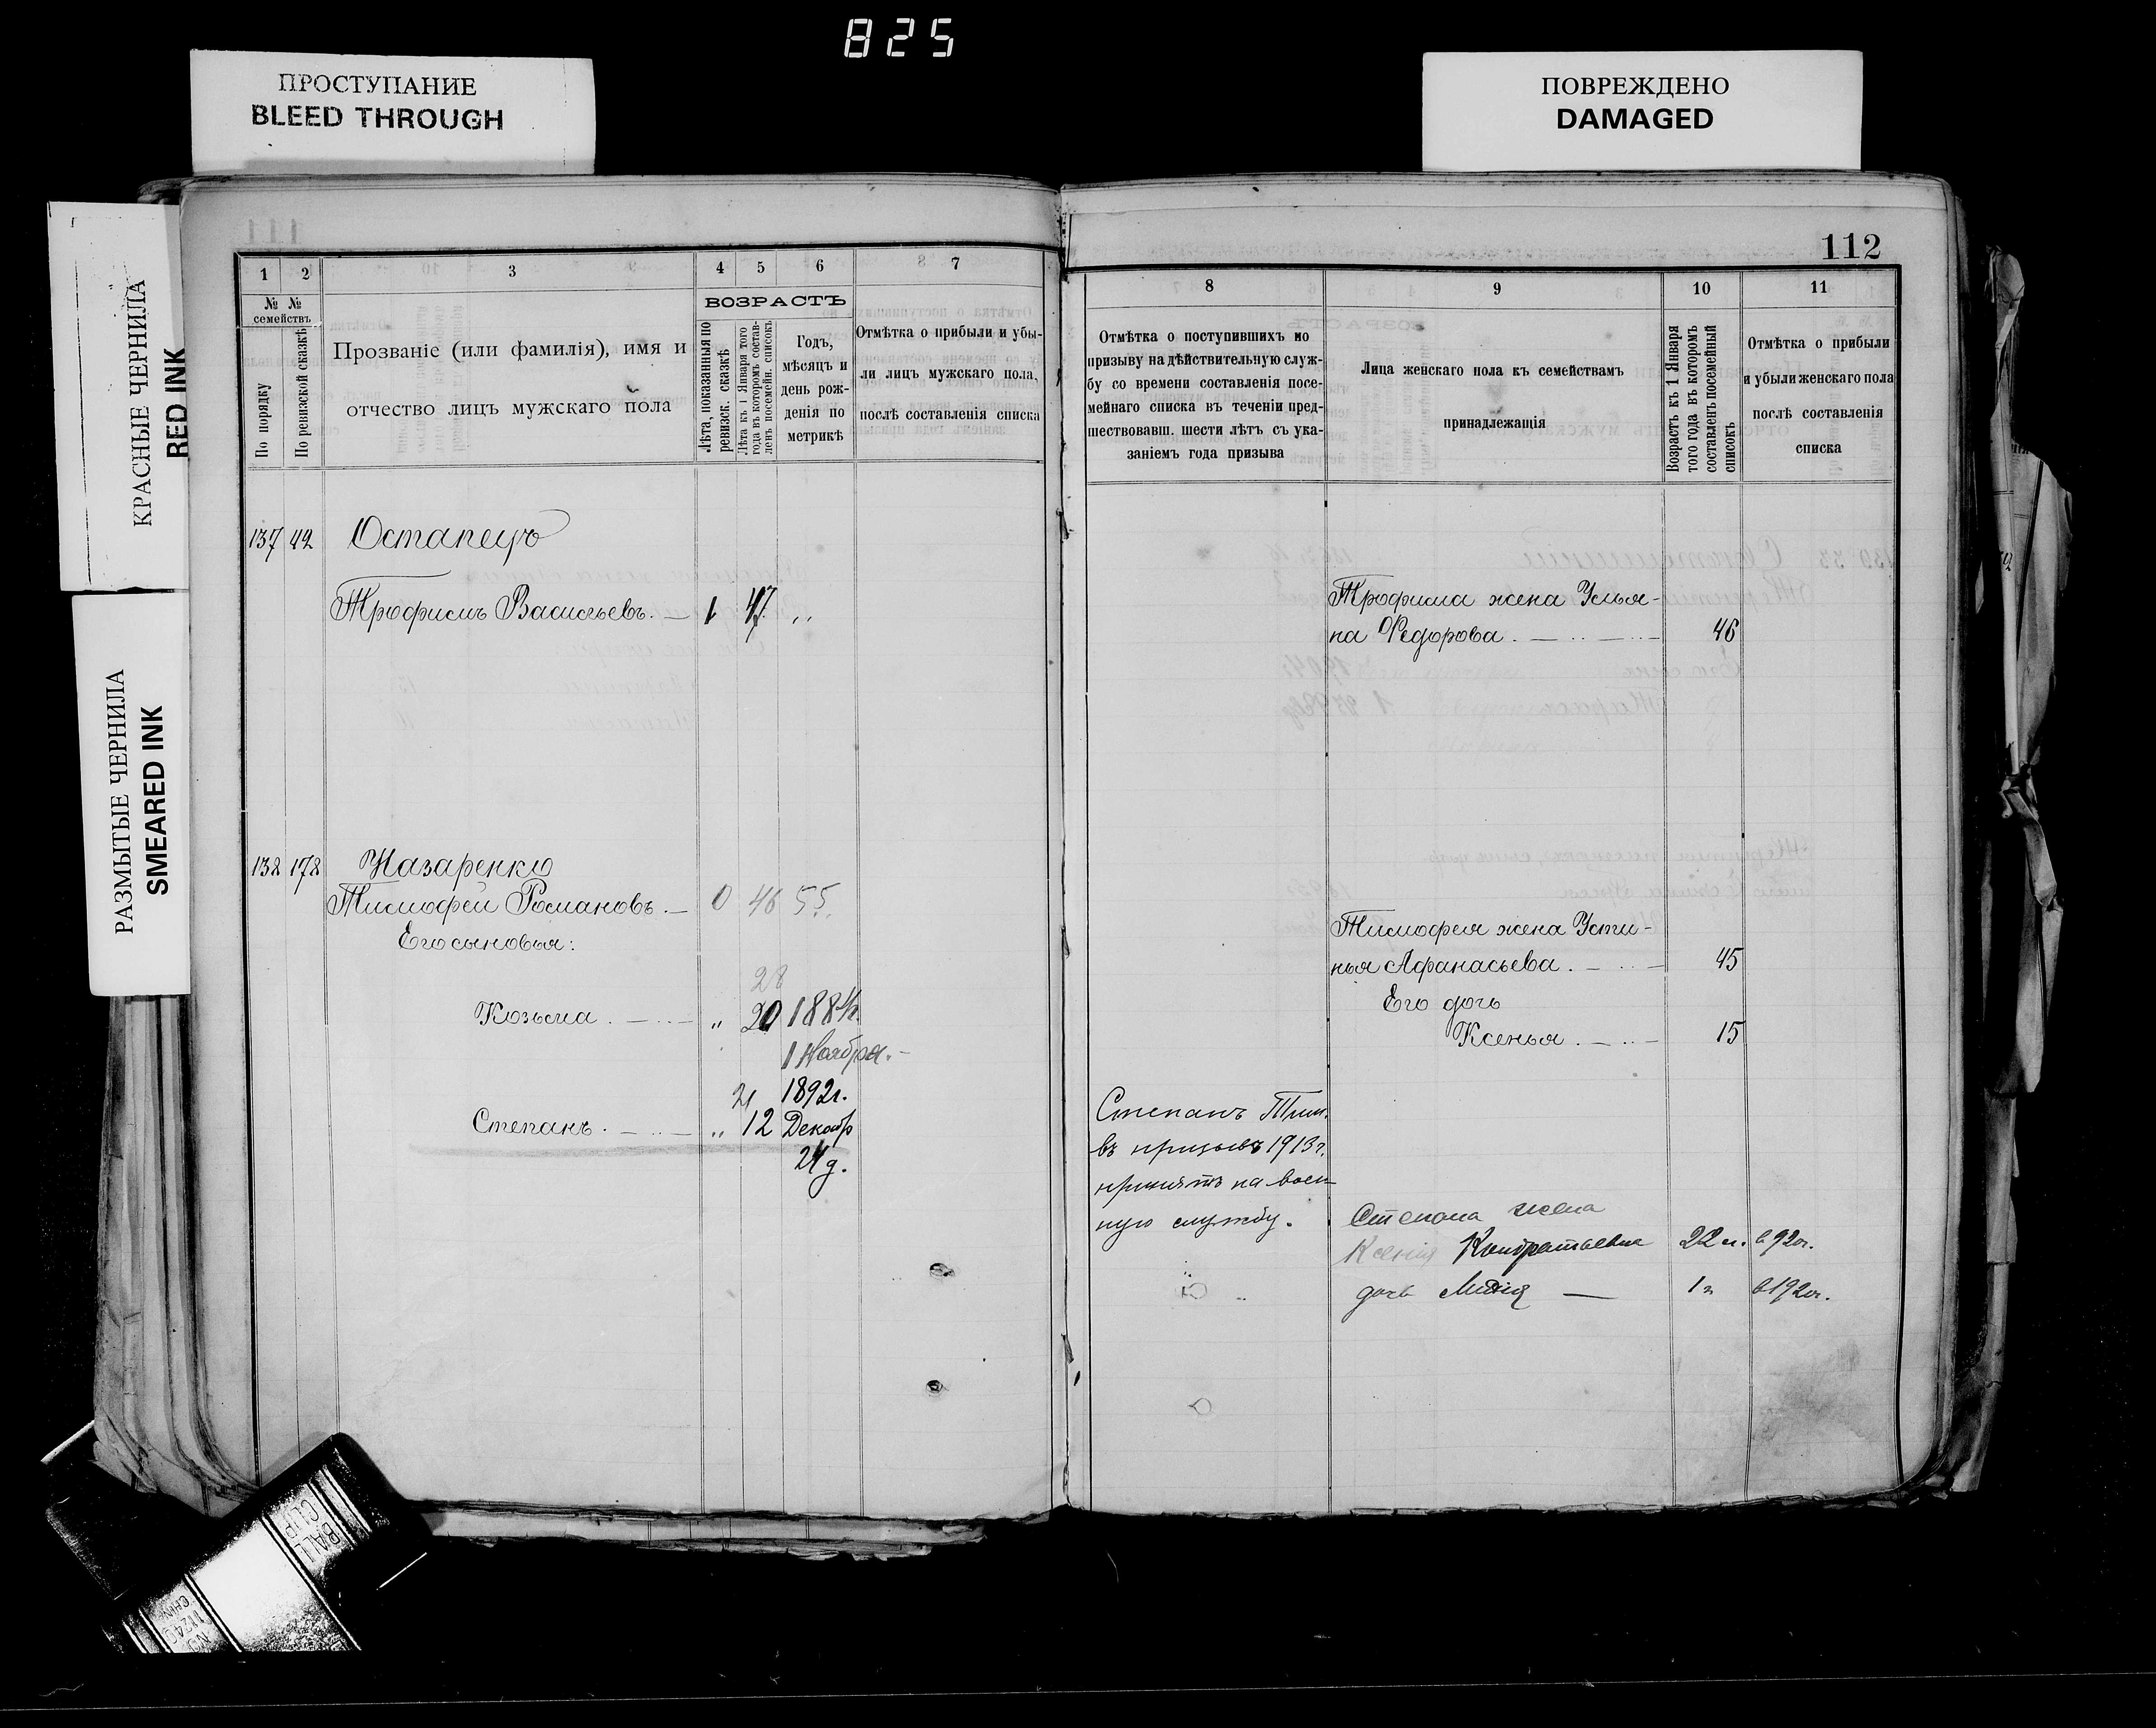 825
ПРОСТУПАНИЕ
BLEED THROUGH
ПОВРЕЖДЕНО
DAMAGED
КРАСНЫЕ ЧЕРНИЛА
RED INK
РАЗМЫТЫЕ ЧЕРНИЛА
SMEARED INK
111
1 2 3 4 5 6 7
№ № семействъ
По порядку
По ревизской сказкѣ
Прозваніе (или фамилія), имя и
отчество лицъ мужскаго пола
ВОЗРАСТЪ
Лѣта, показанныя по
ревизск. сказкѣ
Лѣта къ 1 Января того
года въ которомъ состав-
ленъ посемейн. списокъ
Годъ,
мѣсяцъ и
день рож-
денія по
метрикѣ
Отмѣтка о прибыли и убы-
ли лицъ мужскаго пола,
послѣ составленія списка
137 42 Остапецъ
Трофимъ Васильевъ. — 1 47. „
138 178 Назаренко
Тимофей Романовъ. — 0 46 55.
Его сыновья:
28
Козьма . — .. — „ 20 1884г.
1 Ноября. –
21 1892г.
Степанъ . — .. — „ 12 Декабр
24 д.
112
8 9 10 11
Отмѣтка о поступившихъ по
призыву на дѣйствительную служ-
бу со времени составленія посе-
мейнаго списка въ теченіи пред-
шествовавш. шести лѣтъ съ ука-
заніемъ года призыва
Лица женскаго пола къ семействамъ
принадлежащія
Возрастъ къ 1 Января
того года въ которомъ
составленъ посемейный
списокъ
Отмѣтка о прибыли
и убыли женскаго пола
послѣ составленія
списка
Трофима жена Улья-
на Федорова . — .. — .. — 46
Тимофея жена Усти-
нья Афанасьева . — .. — 45
Его дочь
Ксенья . — .. — 15
Степанъ Тим.
въ призывъ 1913г.
принятъ на воен-
ную службу.
Степана жена
Ксения Кондратьевна 22 л. в 92ог.
дочь — 1 г в 192ог.
BALL
CLIP